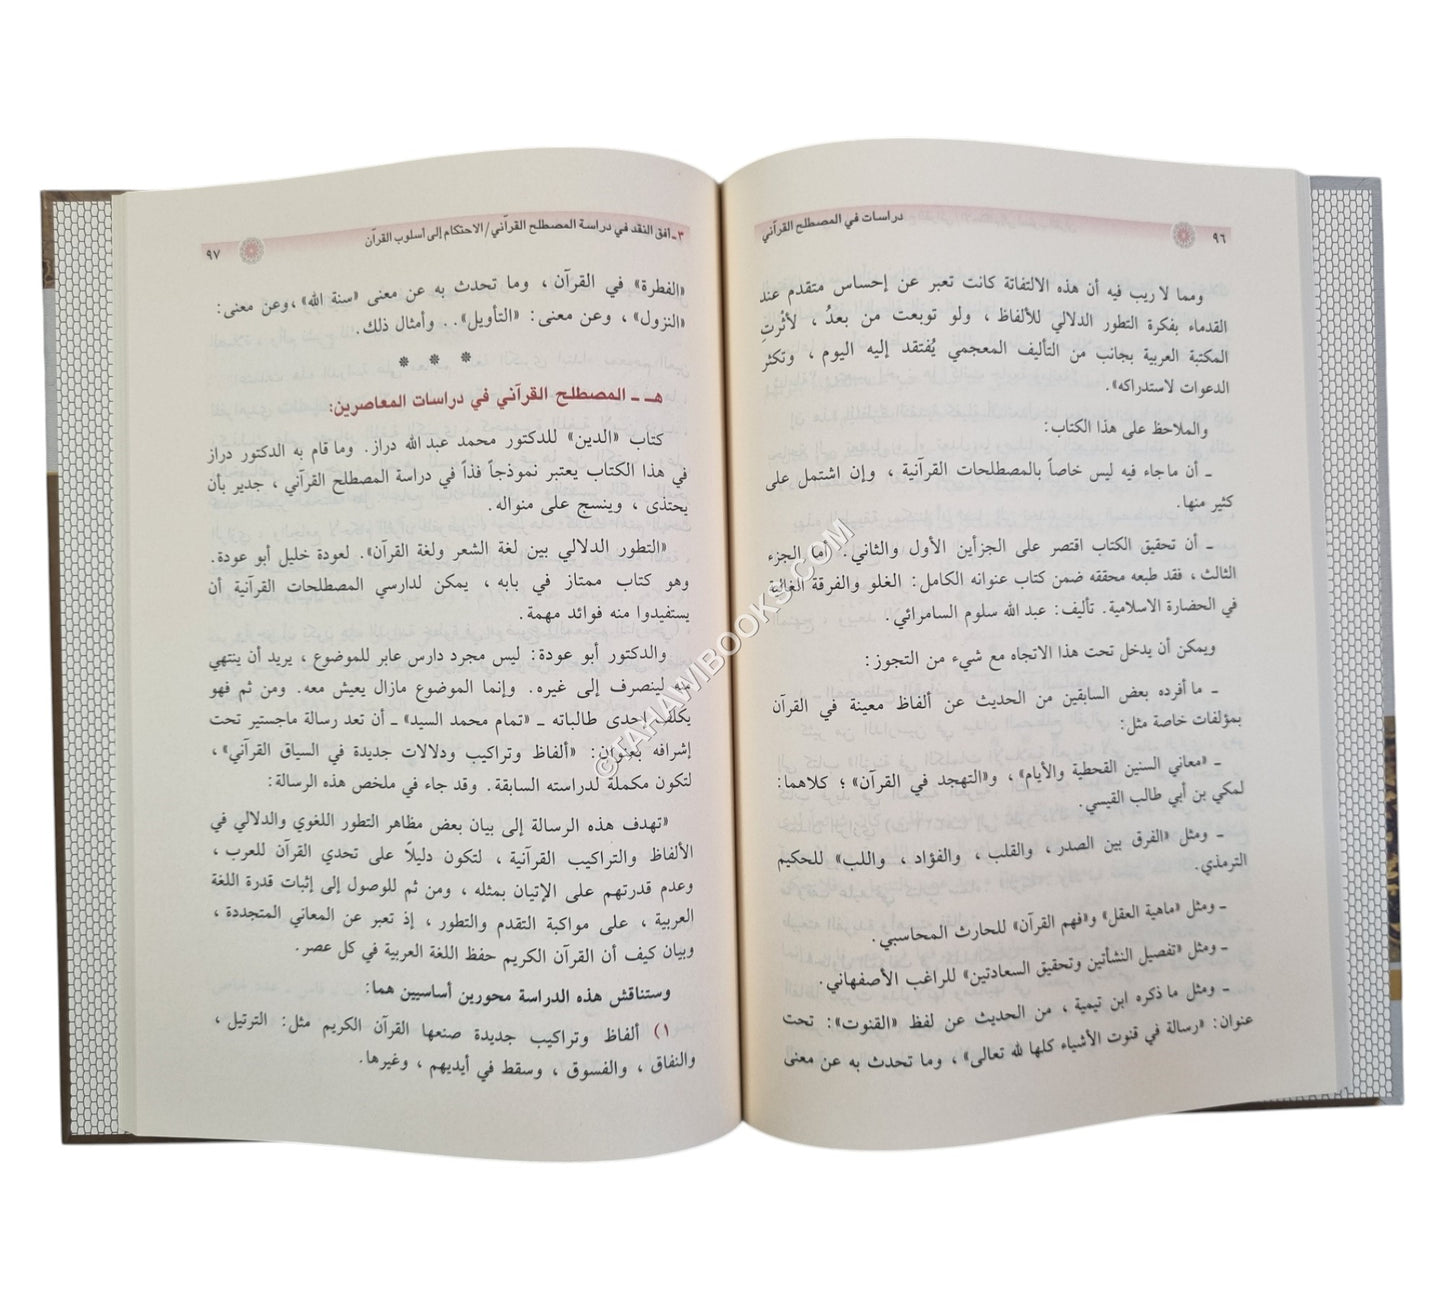 ٩٦
دراسات في المصطلح القرآني
ومما لا ريب فيه أن هذه الالتفاتة كانت تعبر عن إحساس متقدم عند
القدماء بفكرة التطور الدلالي للألفاظ ، ولو توبعت من بعدُ ، لأثْرتِ
المكتبة العربية بجانب من التأليف المعجمي يُفتقد إليه اليوم ، وتكثر
الدعوات لاستدراكه».
والملاحظ على هذا الكتاب:
ـ أن ماجاء فيه ليس خاصاً بالمصطلحات القرآنية ، وإن اشتمل على
كثير منها.
ـ أن تحقيق الكتاب اقتصر على الجزأين الأول والثاني. أما الجزء
الثالث ، فقد طبعه محققه ضمن كتاب عنوانه الكامل: الغلو والفرقة الغالية
في الحضارة الاسلامية. تأليف: عبد الله سلوم السامرائي.
ويمكن أن يدخل تحت هذا الاتجاه مع شيء من التجوز:
ـ ما أفرده بعض السابقين من الحديث عن ألفاظ معينة في القرآن
بمؤلفات خاصة مثل:
ـ «معاني السنين القحطية والأيام» ، و«التهجد في القرآن» ؛ كلاهما:
لمكي بن أبي طالب القيسي.
ـ ومثل «الفرق بين الصدر ، والقلب ، والفؤاد ، واللب» للحكيم
الترمذي.
ـ ومثل «ماهية العقل» و«فهم القرآن» للحارث المحاسبي.
ـ ومثل «تفصيل النشأتين وتحقيق السعادتين» للراغب الأصفهاني.
ـ ومثل ما ذكره ابن تيمية ، من الحديث عن لفظ «القنوت»: تحت
عنوان: «رسالة في قنوت الأشياء كلها لله تعالى» ، وما تحدث به عن معنى
٣ ـ أفق النقد في دراسة المصطلح القرآني / الاحتكام إلى أسلوب القرآن
٩٧
«الفطرة» في القرآن ، وما تحدث به عن معنى «سنة الله» ،وعن معنى:
«النزول» ، وعن معنى: «التأويل».. وأمثال ذلك.
* * *
هـ ـ المصطلح القرآني في دراسات المعاصرين:
كتاب «الدين» للدكتور محمد عبد الله دراز. وما قام به الدكتور دراز
في هذا الكتاب يعتبر نموذجاً فذاً في دراسة المصطلح القرآني ، جدير بأن
يحتذى ، وينسج على منواله.
«التطور الدلالي بين لغة الشعر ولغة القرآن». لعودة خليل أبو عودة.
وهو كتاب ممتاز في بابه ، يمكن لدارسي المصطلحات القرآنية أن
يستفيدوا منه فوائد مهمة.
والدكتور أبو عودة: ليس مجرد دارس عابر للموضوع ، يريد أن ينتهي
منه لينصرف إلى غيره. وإنما الموضوع مازال يعيش معه. ومن ثم فهو
يكلف إحدى طالباته ـ «تمام محمد السيد» ـ أن تعد رسالة ماجستير تحت
إشرافه بعنوان: «ألفاظ وتراكيب ودلالات جديدة في السياق القرآني» ،
لتكون مكملة لدراسته السابقة. وقد جاء في ملخص هذه الرسالة:
«تهدف هذه الرسالة إلى بيان بعض مظاهر التطور اللغوي والدلالي في
الألفاظ والتراكيب القرآنية ، لتكون دليلاً على تحدي القرآن للعرب ،
وعدم قدرتهم على الإتيان بمثله ، ومن ثم للوصول إلى إثبات قدرة اللغة
العربية ، على مواكبة التقدم والتطور ، إذ تعبر عن المعاني المتجددة ،
وبيان كيف أن القرآن الكريم حفظ اللغة العربية في كل عصر.
وستناقش هذه الدراسة محورين أساسيين هما:
١) ألفاظ وتراكيب جديدة صنعها القرآن الكريم مثل: الترتيل ،
والنفاق ، والفسوق ، وسقط في أيديهم ، وغيرها.
©TAHAWIBOOKS.COM